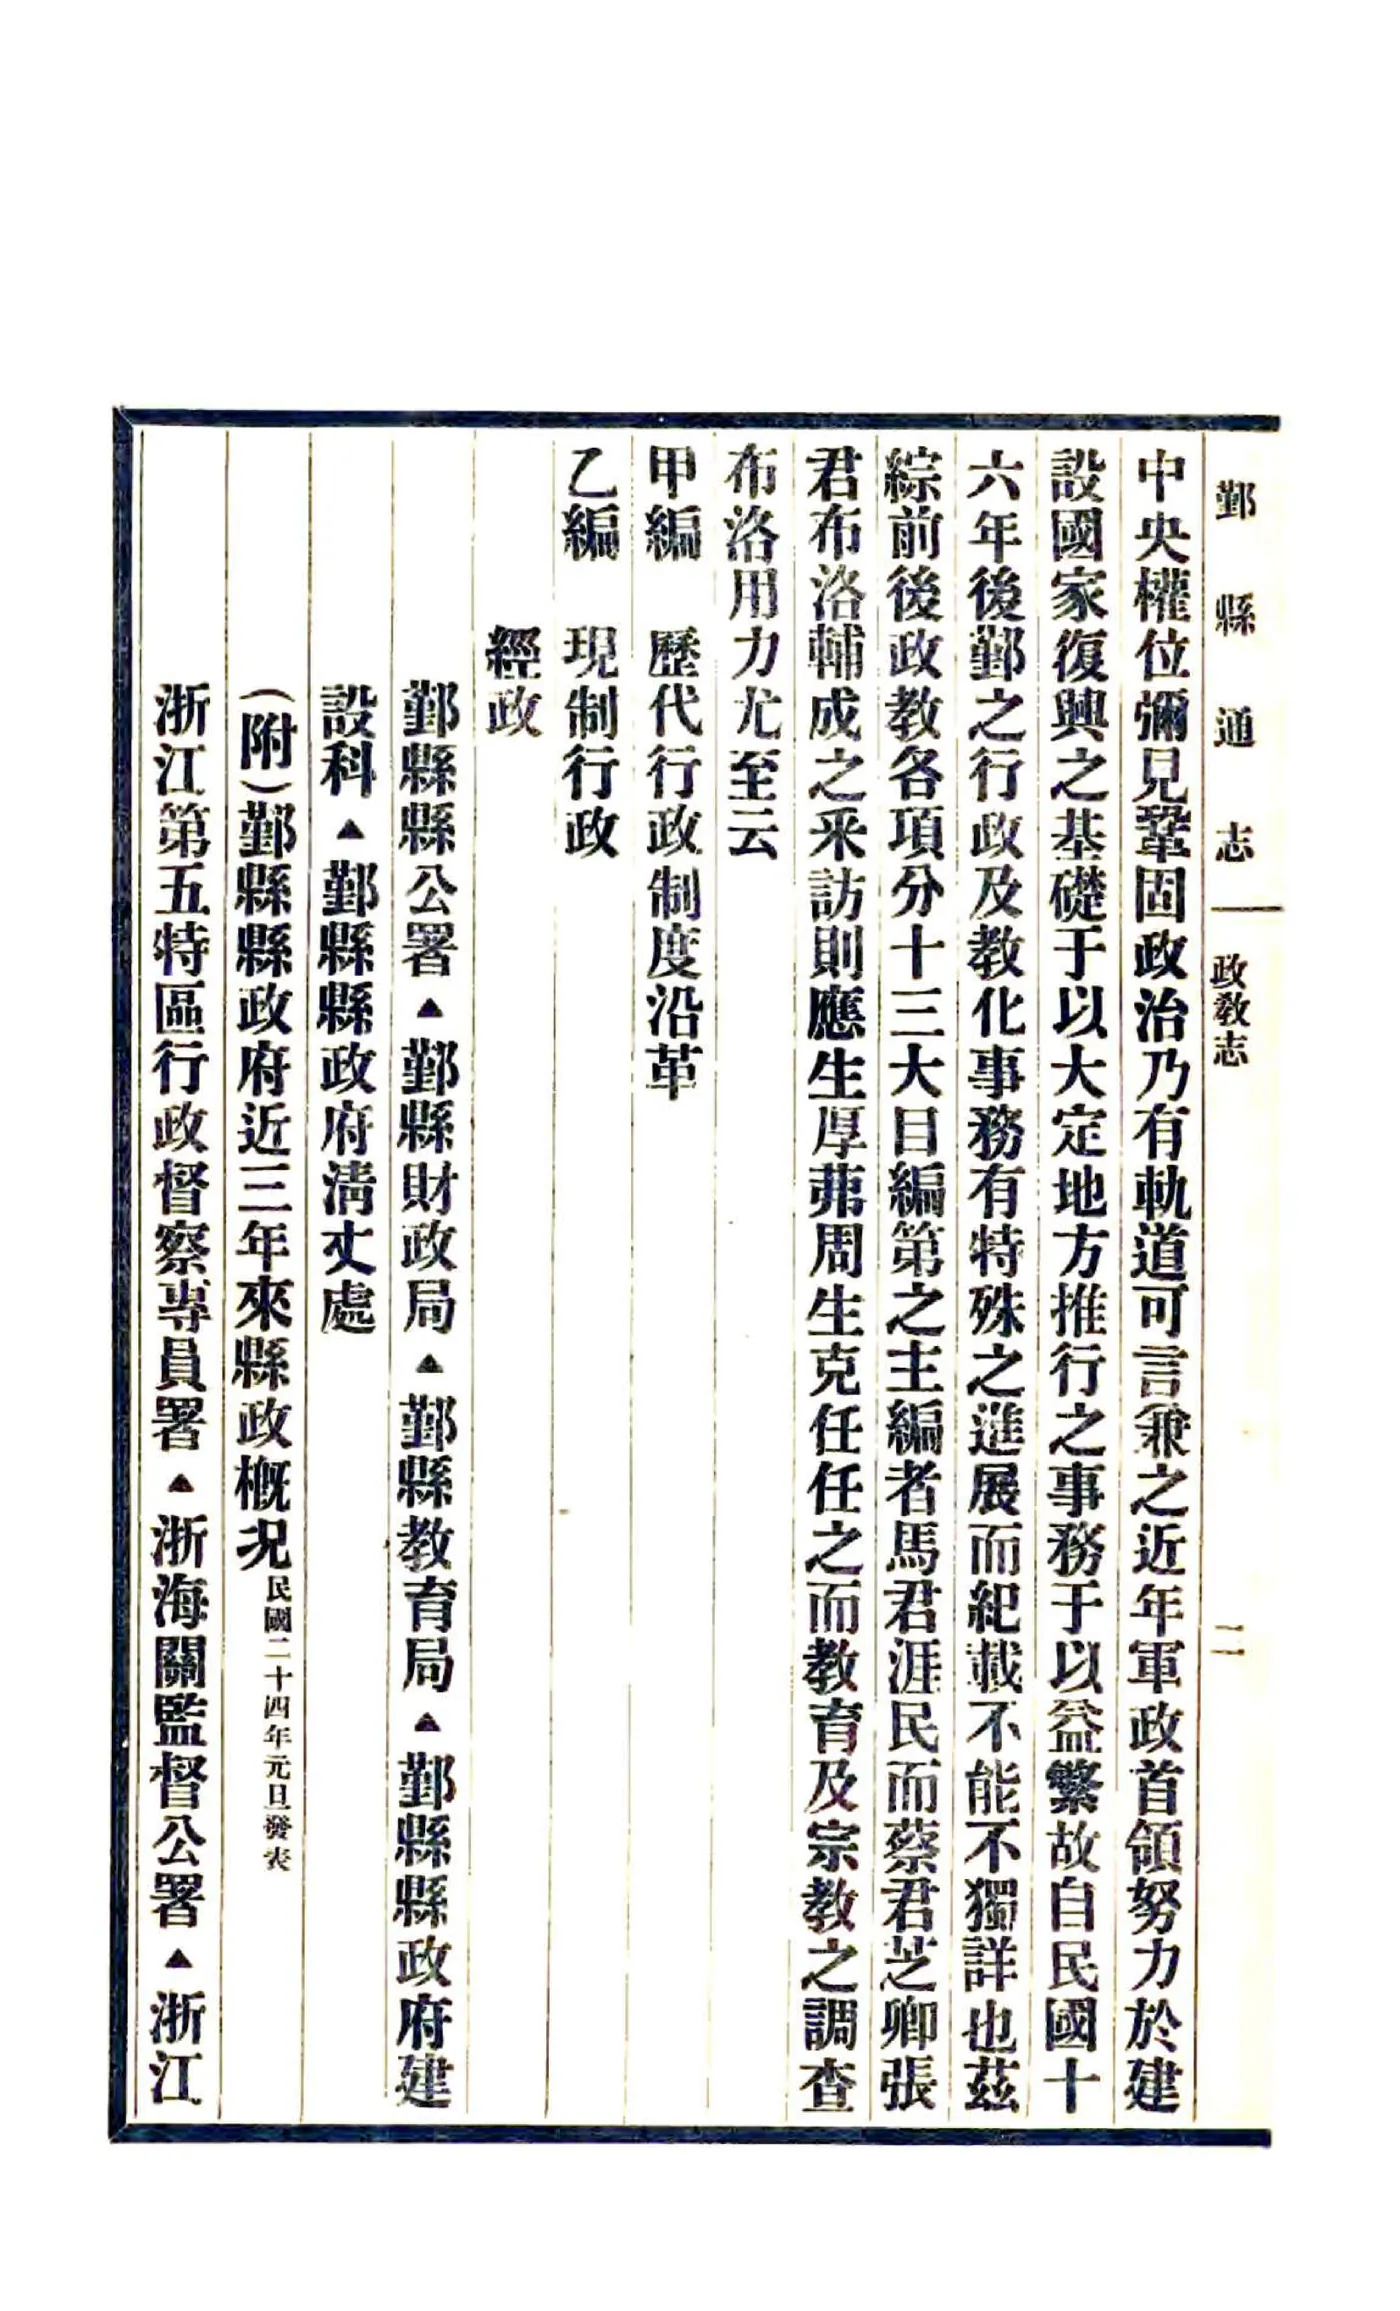 鄞縣通志　政敎志　二
中央權位彌見鞏固政治乃有軌道可言兼之近年軍政首領努力於建
設國家復興之基礎于以大定地方推行之事務于以益繁故自民國十
六年後鄞之行政及教化事務有特殊之進展而紀載不能不獨詳也茲
綜前後政教各項分十三大目編第之主編者馬君涯民而蔡君芝卿張
君布洛輔成之釆訪則應生厚茀周生克任任之而教育及宗教之調查
布洛用力尤至云
甲編　歷代行政制度沿革
乙編　現制行政
經政
鄞縣縣公署▲鄞縣財政局▲鄞縣教育局▲鄞縣縣政府建
設科▲鄞縣縣政府淸丈處
（附）鄞縣縣政府近三年來縣政槪況民國二十四年元旦發表
浙江第五特區行政督察專員署▲浙海關監督公署▲浙江